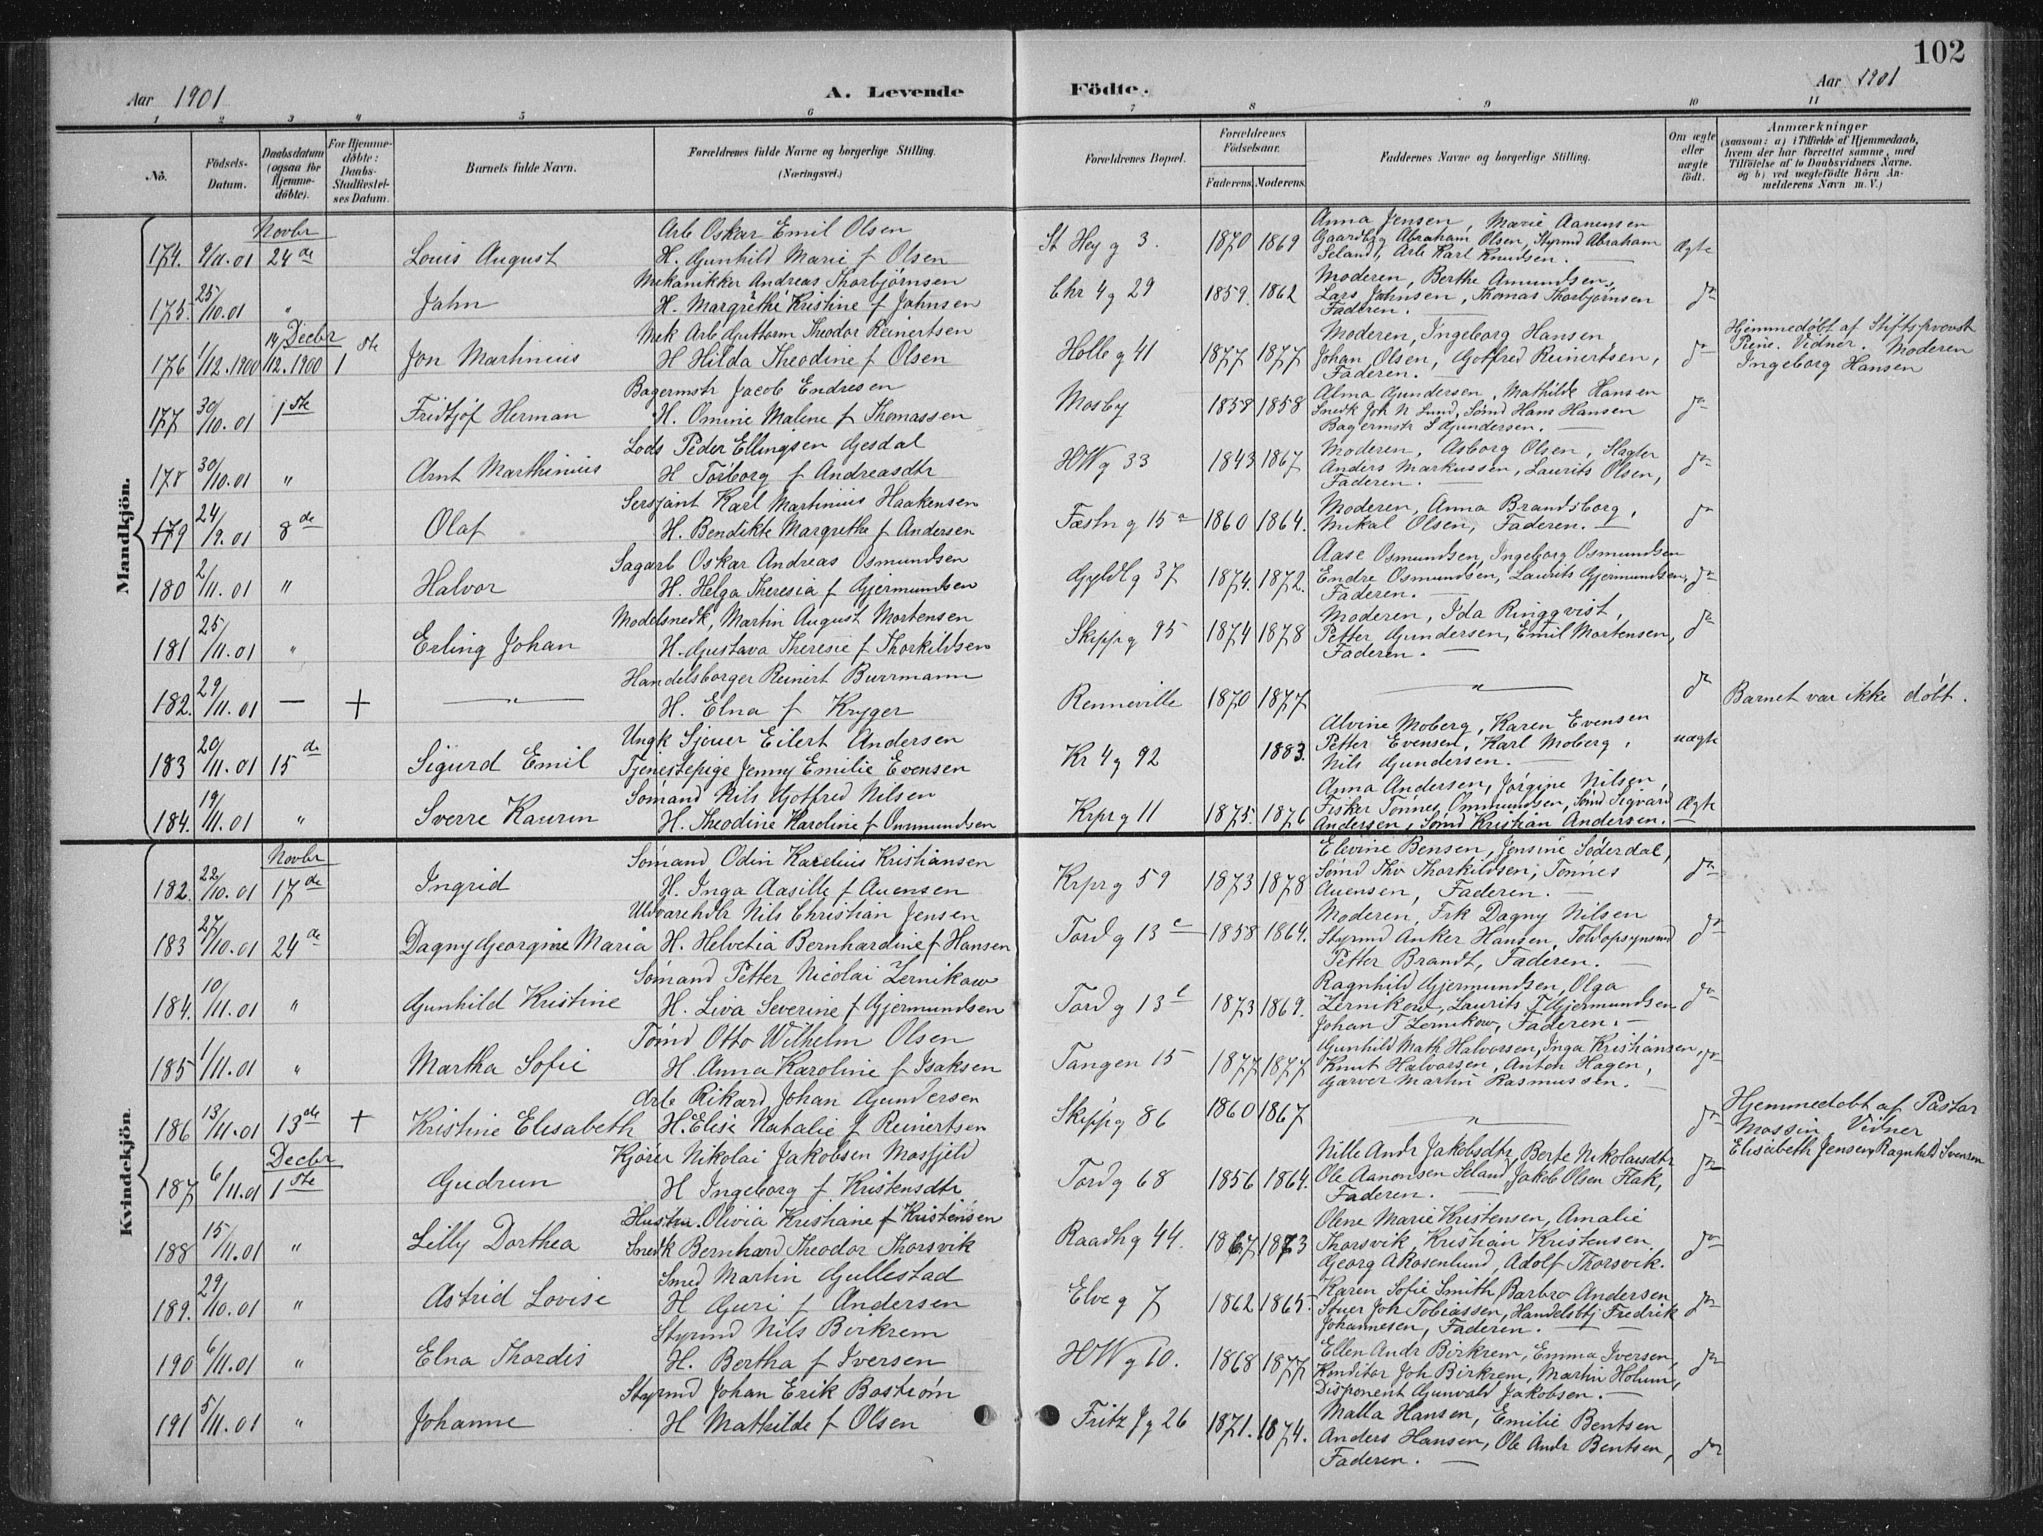 102
Aar 1901 A. Levende Födte. Aar 1901
1 2 3 4 5 6 7 8 9 10 11
No. Födsels-Datum. Daabsdatum (ogsaa for Hjemme-döbte). For Hjemme-döbte: Daabs-Stadfæstel-ses Datum. Barnets fulde Navn. Forældrenes fulde Navne og borgerlige Stilling. (Næringsvei.) Forældrenes Bopæl. Forældrenes Födselsaar. Faderens. Moderens. Faddernes Navne og borgerlige Stilling. Om ægte eller uægte födt. Anmærkninger (saasom: a) i Tilfælde af Hjemmedaab, hvem der har forrettet samme, med Tilföielse af to Daabsvidners Navne, og b) ved uægtefödte Börn An-melderens Navn m. V.)
Mandkjön.
Novbr
174. 9/11.01 24de Louis August Arb Oskar Emil Olsen
H. Gunhild Marie f Olsen St Hey g 3. 1870 1869 Anna Jensen, Marie Aanensen
Gaardbg Abraham Olsen, Styrmd Abraham
Seland, Arb Karl Knudsen. — Ægte
175. 25/10.01 " Jahn Mekanikker Andreas Thorbjørnsen
H. Margrethe Kristine f Jahnsen Chr 4 g 29 1859. 1862 Moderen, Berthe Amundsen,
Lars Jahnsen, Thomas Thorbjørnsen
Faderen. — do
Decbr
176 1/12.1900 14/12.1900 1ste Jon Martinius Mek Arb Guttorm Theodor Reinertsen
H Hilda Theodine f Olsen Holb g 41 1877 1877 Moderen, Ingeborg Hansen
Johan Olsen, Gotfred Reinertsen,
Faderen. — do Hjemmedøbt af Stiftsprovst
Piene. Vidner. Moderen
Ingeborg Hansen
177 30/10.01 1ste Fridtjof Herman Bagermstr Jacob Endresen
H. Omine Malene f Thomassen Mosby 1858 1858 Alma Gundersen, Mathilde Hansen
Snedk Joh N Lund, Sømd Hans Hansen
Bagermstr S Gundersen. — do
178 30/10.01 " Arnt Marthinius Lods Peder Ellingsen Gjesdal
H Torborg f Andreasdtr HW g 33 1843 1867 Moderen, Asborg Olsen, Slagter
Anders Markussen, Laurits Olsen,
Faderen. — do
179 24/9.01 8de Olaf Sersjant Karl Martinius Haakensen
H. Bendikte Margrethe f Andersen Fæstn g 15a 1860 1864. Moderen, Anna Brandsborg,
Mikal Olsen, Faderen. — do
180 2/11.01 " Halvor Sagarb Oskar Andreas Osmundsen
H. Helga Theresia f Gjermundsen Gyldl g 37 1874. 1872. Aase Osmundsen, Ingeborg Osmundsen
Endre Osmundsen, Laurits Gjermundsen,
Faderen. — do
181 25/11.01 " Erling Johan Modelsnedk, Martin August Mortensen
H. Gustava Theresie f Thorkildsen Skipp g 95 1874 1878 Moderen, Ida Ringqvist,
Petter Gundersen, Emil Mortensen,
Faderen. — do
182. 29/11.01 — + — " — Handelsborger Reinert Burrmann
H. Elna f Kryger Renneville 1870 1877 — " — do Barnet var ikke døbt.
183 20/11.01 15de Sigurd Emil Ungk Sjeuer Eilert Andersen
Tjenestepige Jenny Emilie Evensen Kr 4 g 92 1883. Alvine Moberg, Karen Evensen
Petter Evensen, Karl Moberg,
Nils Gundersen. — uægte
184. 19/11.01 " Sverre Kaurin Sømand Nils Gotfred Nilsen
H. Theodine Karoline f Ommundsen Krpr g 11 1875. 1876 Anna Andersen, Jørgine Nilsen,
Fisker Tønnes Ommundsen, Sømd Sigvard
Andersen, Sømd Kristian Andersen. Ægte
Kvindekjön.
Novbr
182. 22/10.01 17de Ingrid Sømand Odin Karelius Kristiansen
H. Inga Aasille f Auensen Krpr g 59 1873 1878 Elevine Bensen, Jensine Söderdal,
Sømd Tho Thorkildsen, Tønnes
Auensen, Faderen. — do
183 27/10.01 24de Dagny Georgine Maria Uldvarehdlr Nils Christian Jensen
H. Helvetia Bernhardine f Hansen Tord g 13c 1858 1864. Moderen, Frk Dagny Nilsen
Styrmd Anker Hansen, Toldopsynsmd
Petter Brandt, Faderen. — do
184. 10/11.01 " Gunhild Kristine Sømand Petter Nicolai Zernikow
H. Liva Severine f Gjermundsen Tord g 13b 1873 1869. Ragnhild Gjermundsen, Olga
Zernikow, Laurits T Gjermundsen
Johan T Zernikow, Faderen. — do
185 1/11.01 " Martha Sofie Tømd Otto Wilhelm Olsen
H. Anna Karoline f Isaksen Tangen 15 1877 1877 Gunhild Math Halvorsen, Inga Kristiansen,
Knut Halvorsen, Anton Hagen,
Garver Martin Rasmussen. — do
186 13/11.01 13de + Kristine Elisabeth Arb Rikard Johan Gundersen
H. Elise Natalie f Reinertsen Skipp g 86 1860 1867 — " — do Hjemmedøbt af Pastor
Mossin Vidner
Elisabeth Jensen, Ragnhild Svensen
Decbr
187 6/11.01 1ste Gudrun Kjører Nikolai Jakobsen Mosfjeld
H Ingeborg f Kristensdtr Tord g 68 1856 1864. Nille Andr Jakobsdtr, Berte Nikolaisdtr
Ole Aanonsen Seland, Jakob Olsen Flak,
Faderen. — do
188 15/11.01 " Lilly Dorthea Hustru Olivia Kristiane f Kristensen
Snedk Bernhard Theodor Thorsvik Raadh g 44. 1867 1873 Olene Marie Kristensen, Amalie
Thorsvik, Kristian Kristensen,
Georg A Rosenlund, Adolf Thorsvik. do
189. 29/10.01 " Astrid Lovise Smed Martin Gullestad
H Guri f Andersen Elve g 7 1862 1865. Karen Sofie Smith, Barbro Andersen
Stuer Joh Tobiassen, Handelsbtj Fredrik
Johannesen, Faderen. — do
190 6/11.01 " Elna Thordis Styrmd Nils Birkrem
H. Bertha f Iversen HW g 60. 1868 1877 Ellen Andr Birkrem, Emma Iversen,
Konditor Joh Birkrem, Martin Holum,
Disponent Gunvald Jakobsen. — do
191 5/11.01 " Johanne Styrmd Johan Erik Bostrøm
H Mathilde f Olsen Fritz J g 26 1871. 1874. Malla Hansen, Emilie Bentsen
Anders Hansen, Ole Andr Bentsen,
Faderen. — do